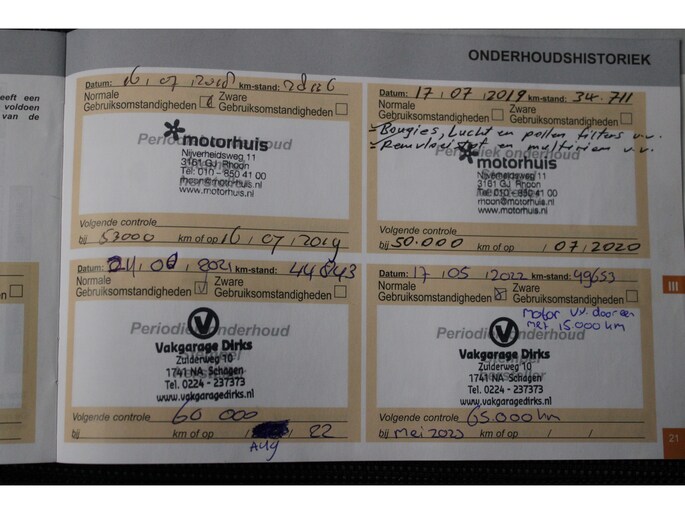 ONDERHOUDSHISTORIEK
eeft een
voldoen
van de
Datum: 16 / 07 / 2018 km-stand:
Normale Gebruiksomstandigheden Zware Gebruiksomstandigheden
Periodiek onderhoud
motorhuis
Nijverheidsweg 11
3161 GJ Rhoon
Tel: 010 - 850 41 00
rhoon@motorhuis.nl
www.motorhuis.nl
Volgende controle
bij 53000 km of op 16 / 07 / 2019
Datum: 17 / 07 / 2019 km-stand: 34.711
Normale Gebruiksomstandigheden Zware Gebruiksomstandigheden
- Bougies, Lucht en pollen filters v.v.
- Remvloeistof en multiriem v.v.
Periodiek onderhoud
motorhuis
Nijverheidsweg 11
3161 GJ Rhoon
Tel: 010 - 850 41 00
rhoon@motorhuis.nl
www.motorhuis.nl
Volgende controle
bij 50.000 km of op / 07 / 2020
Datum: / 2021 km-stand: 44843
Normale Gebruiksomstandigheden Zware Gebruiksomstandigheden
Periodiek onderhoud
V
Vakgarage Dirks
Zuiderweg 10
1741 NA Schagen
Tel. 0224 - 237373
www.vakgaragedirks.nl
Volgende controle 60 000
bij km of op / / 22
Aug
Datum: 17 / 05 / 2022 km-stand: 49653
Normale Gebruiksomstandigheden Zware Gebruiksomstandigheden
motor v.v. door een
met 15.000 km
Periodiek onderhoud
V
Vakgarage Dirks
Zuiderweg 10
1741 NA Schagen
Tel. 0224 - 237373
www.vakgaragedirks.nl
Volgende controle 65.000 km
bij mei 2023 km of op / /
III
21